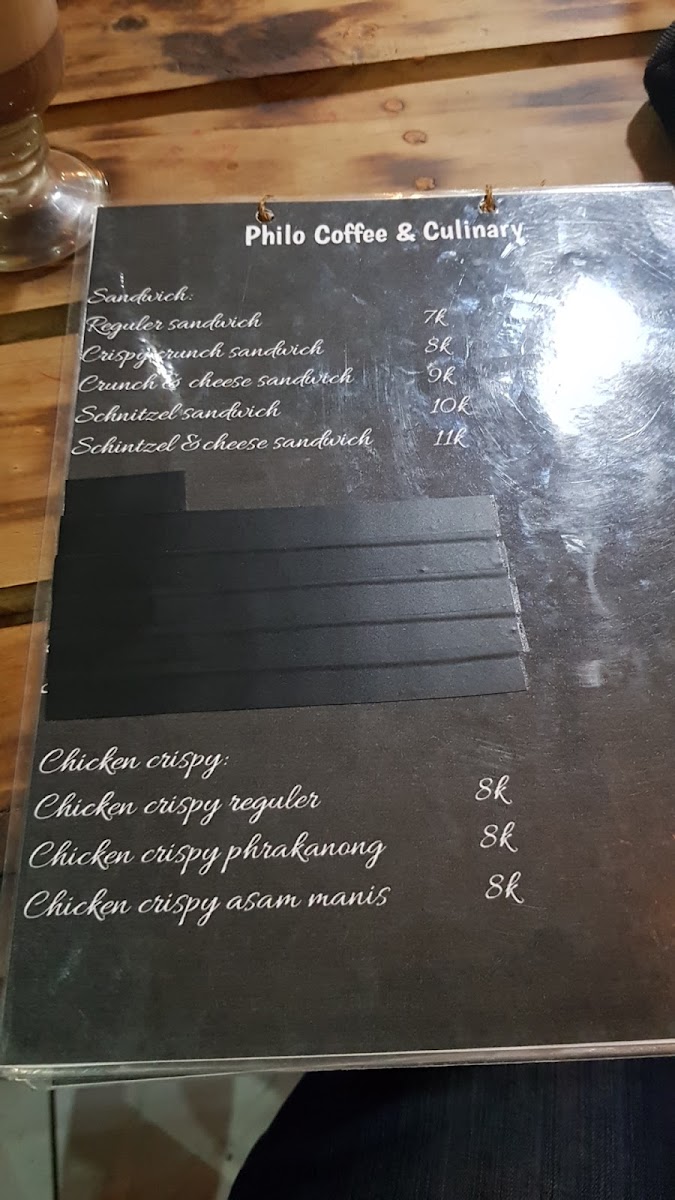 Philo Coffee & Culinary
Sandwich:
Reguler sandwich 7k
Crispy crunch sandwich 8k
Crunch & cheese sandwich 9k
Schnitzel sandwich 10k
Schintzel & cheese sandwich 11k
Chicken crispy:
Chicken crispy reguler 8k
Chicken crispy phrakanong 8k
Chicken crispy asam manis 8k